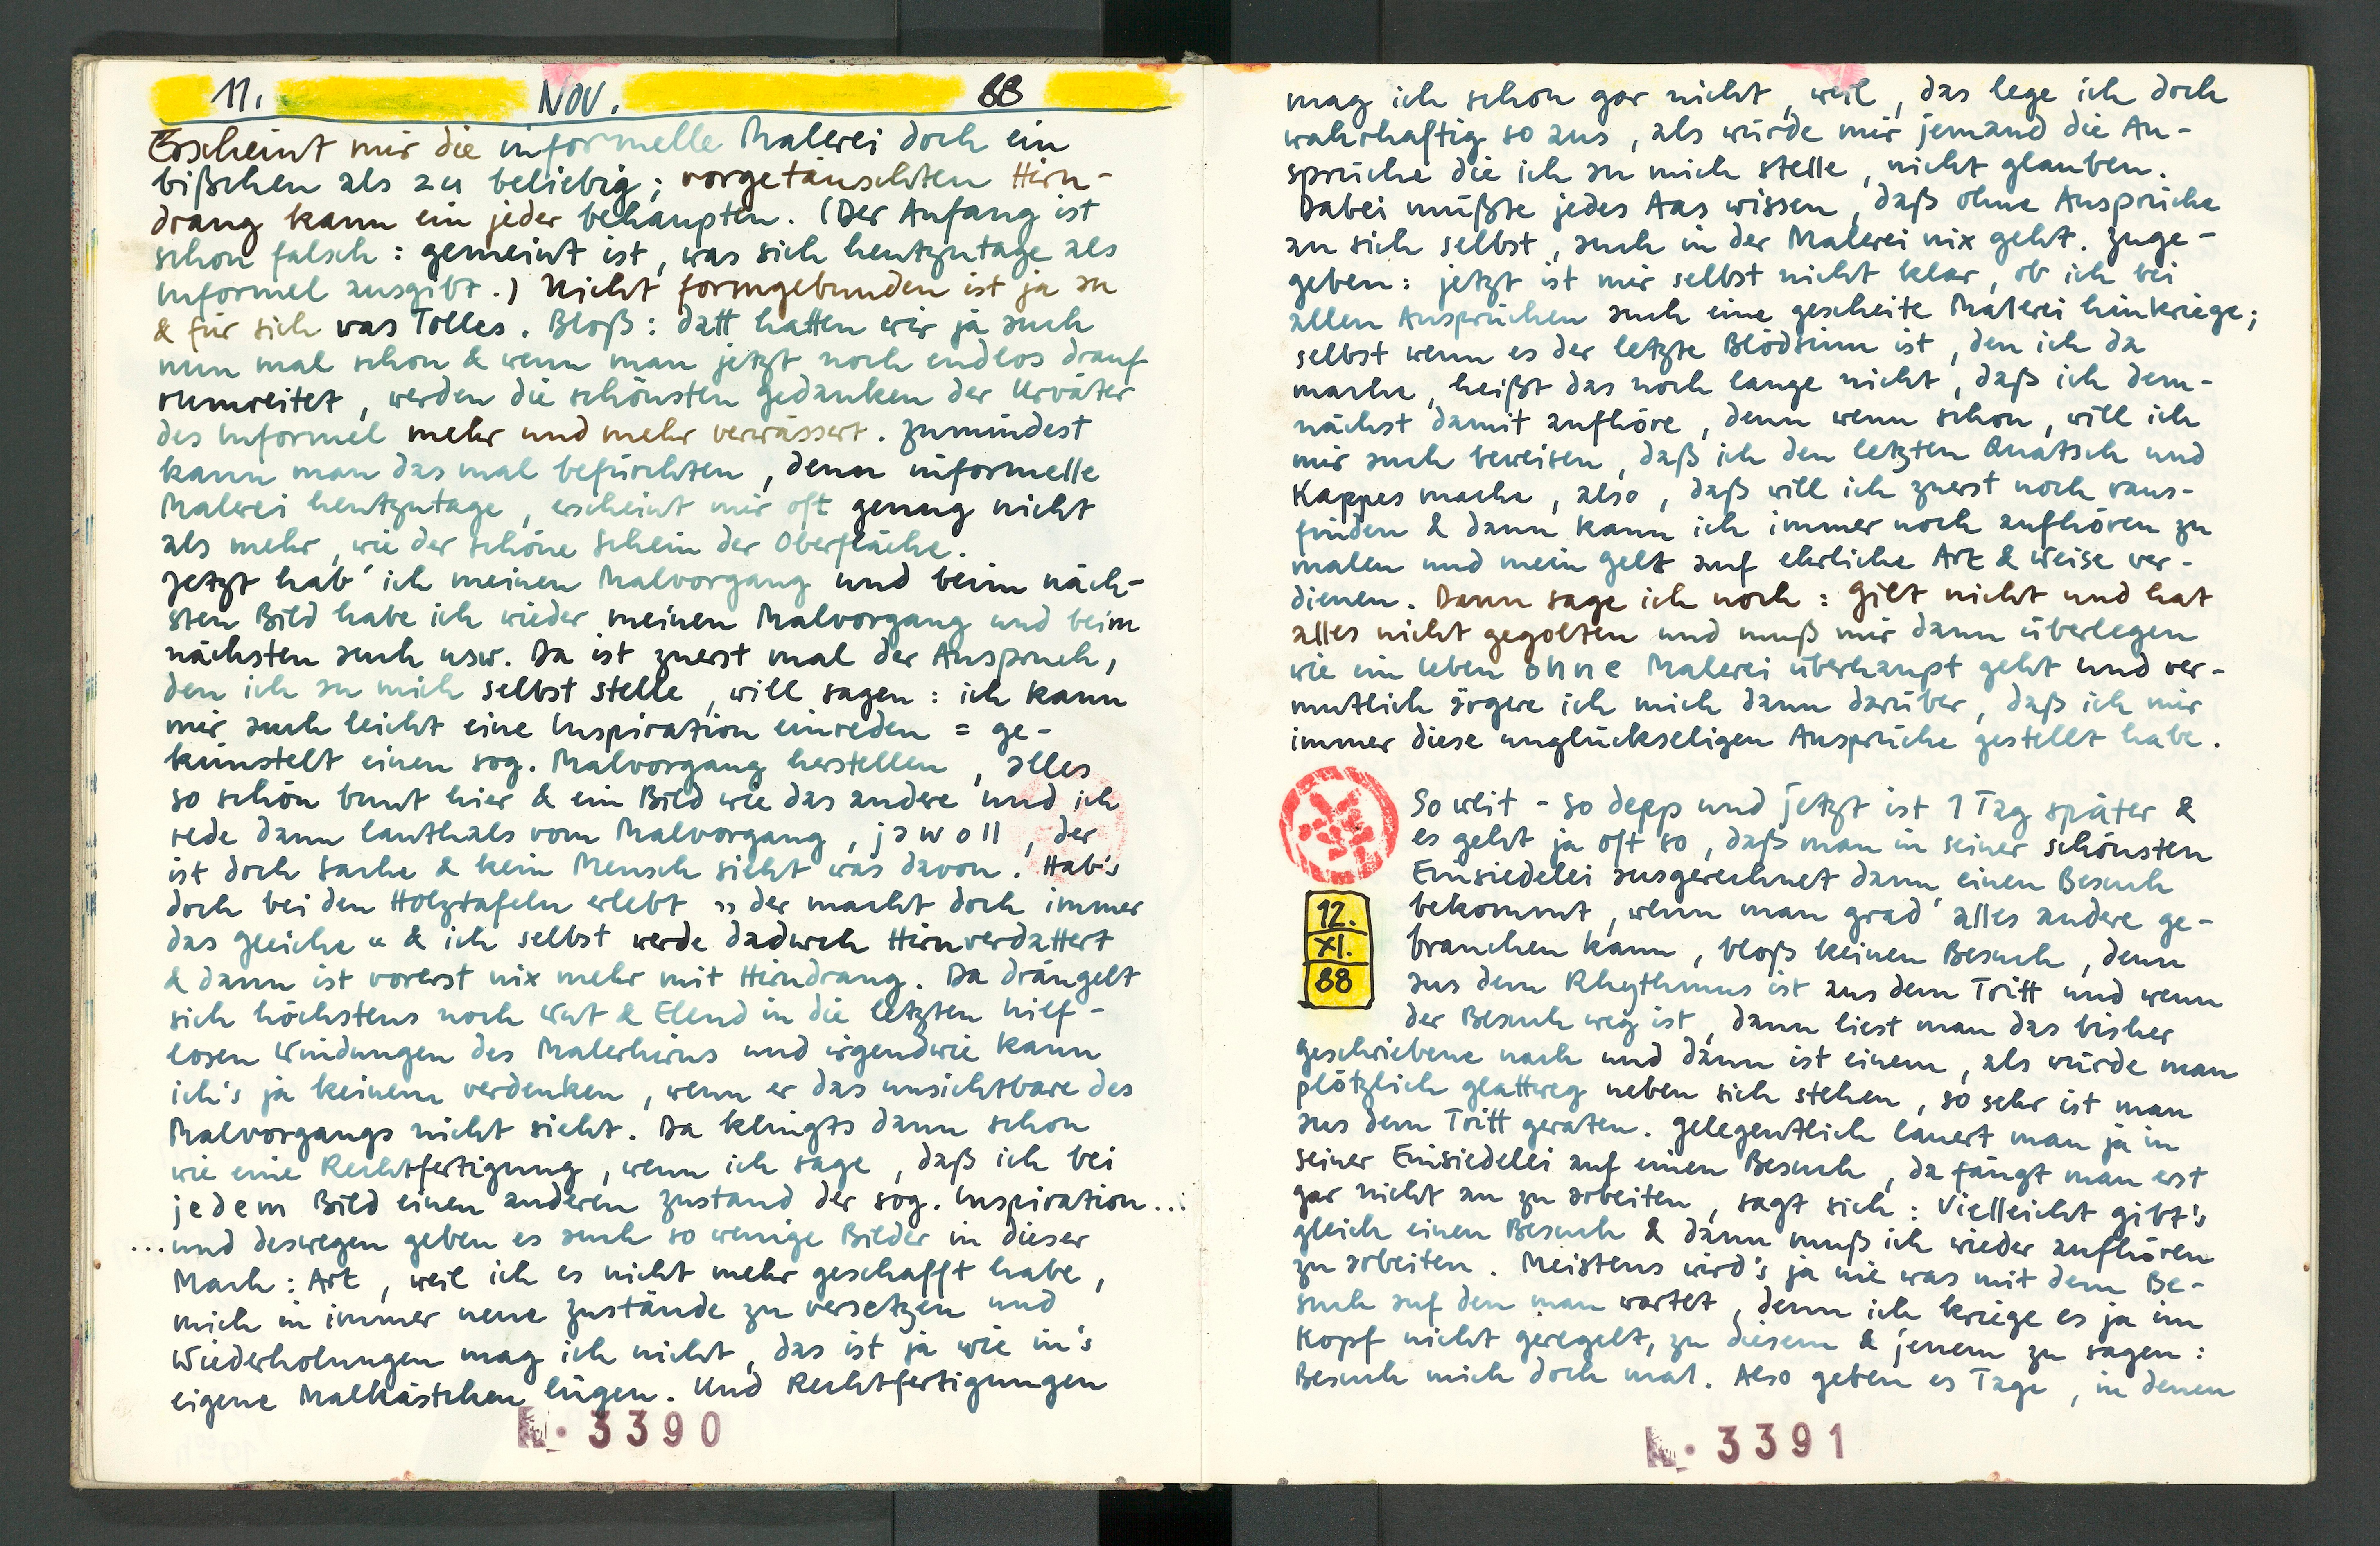 11. NOV. 88
Erscheint mir die informelle Malerei doch ein
bißchen als zu beliebig; vorgetäuschten Hirn-
drang kann ein jeder behaupten. (Der Anfang ist
schon falsch: gemeint ist, was sich heutzutage als
Informel ausgibt.) Nicht formgebunden ist ja an
& für sich was Tolles. Bloß: datt hatten wir ja auch
nun mal schon & wenn man jetzt noch endlos drauf
rumreitet, werden die schönsten Gedanken der Urväter
des Informel mehr und mehr verwässert. Zumindest
kann man das mal befürchten, denn informelle
Malerei heutzutage, erscheint mir oft genug nicht
als mehr, wie der schöne Schein der Oberfläche.
Jetzt hab' ich meinen Malvorgang und beim näch-
sten Bild habe ich wieder meinen Malvorgang und beim
nächsten auch usw. Da ist zuerst mal der Anspruch,
den ich an mich selbst stelle, will sagen: ich kann
mir auch leicht eine Inspiration einreden = ge-
künstelt einen sog. Malvorgang herstellen, alles
so schön bunt hier & ein Bild wie das andere und ich
rede dann lauthals vom Malvorgang, jawoll, der
ist doch Sache & kein Mensch sieht was davon. Hab's
doch bei den Holztafeln erlebt „der macht doch immer
das Gleiche" & ich selbst werde dadurch Hirnverdattert
& dann ist vorerst nix mehr mit Hirndrang. Da drängelt
sich höchstens noch Wut & Elend in die letzten hilf-
losen Windungen des Malerhirns und irgendwie kann
ich's ja keinem verdenken, wenn er das unsichtbare des
Malvorgangs nicht sieht. Da klingts dann schon
wie eine Rechtfertigung, wenn ich sage, daß ich bei
jedem Bild einen anderen Zustand der sog. Inspiration...
...und deswegen geben es auch so wenige Bilder in dieser
Mach: Art, weil ich es nicht mehr geschafft habe,
mich in immer neue Zustände zu versetzen und
Wiederholungen mag ich nicht, das ist ja wie in's
eigene Malkästchen lügen. Und Rechtfertigungen
N. 3390
mag ich schon gar nicht, weil, das lege ich doch
wahrhaftig so aus, als würde mir jemand die An-
sprüche die ich an mich stelle, nicht glauben.
Dabei müßte jedes Aas wissen, daß ohne Ansprüche
an sich selbst, auch in der Malerei nix geht. Zuge-
geben: jetzt ist mir selbst nicht klar, ob ich bei
allen Ansprüchen auch eine gescheite Malerei hinkriege;
selbst wenn es der letzte Blödsinn ist, den ich da
mache, heißt das noch lange nicht, daß ich dem-
nächst damit aufhöre, denn wenn schon, will ich
mir auch beweisen, daß ich den letzten Quatsch und
Kappes mache, also, daß will ich zuerst noch raus-
finden & dann kann ich immer noch aufhören zu
malen und mein Gelt auf ehrliche Art & Weise ver-
dienen. Dann sage ich noch: Gilt nicht und hat
alles nicht gegolten und muß mir dann überlegen
wie ein Leben ohne Malerei überhaupt geht und ver-
mutlich ärgere ich mich dann darüber, daß ich mir
immer diese unglückseligen Ansprüche gestellt habe.
So weit - so depp und jetzt ist 1 Tag später &
es geht ja oft so, daß man in seiner schönsten
Einsiedelei ausgerechnet dann einen Besuch
12. XI. 88
bekommt, wenn man grad' alles andere ge-
brauchen kann, bloß keinen Besuch, denn
aus dem Rhythmus ist aus dem Tritt und wenn
der Besuch weg ist, dann liest man das bisher
geschriebene nach und dann ist einem, als würde man
plötzlich glattweg neben sich stehen, so sehr ist man
aus dem Tritt geraten. Gelegentlich lauert man ja in
seiner Einsiedelei auf einen Besuch, da fängt man erst
gar nicht an zu arbeiten, sagt sich: Vielleicht gibt's
gleich einen Besuch & dann muß ich wieder aufhören
zu arbeiten. Meistens wird's ja nie was mit dem Be-
such auf den man wartet, denn ich kriege es ja im
Kopf nicht geregelt, zu diesem & jenem zu sagen:
Besuch mich doch mal. Also geben es Tage, in denen
N. 3391